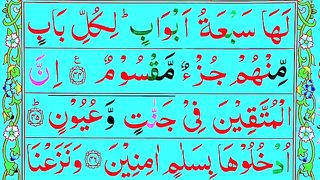 لَهَا سَبْعَةُ اَبْوَابٍ ؕ لِكُلِّ بَابٍ
مِّنْهُمْ جُزْءٌ مَّقْسُوْمٌ ۝۴۴ اِنَّ
الْمُتَّقِيْنَ فِيْ جَنّٰتٍ وَّعُيُوْنٍ ۝۴۵
اُدْخُلُوْهَا بِسَلٰمٍ اٰمِنِيْنَ ۝۴۶ وَنَزَعْنَا